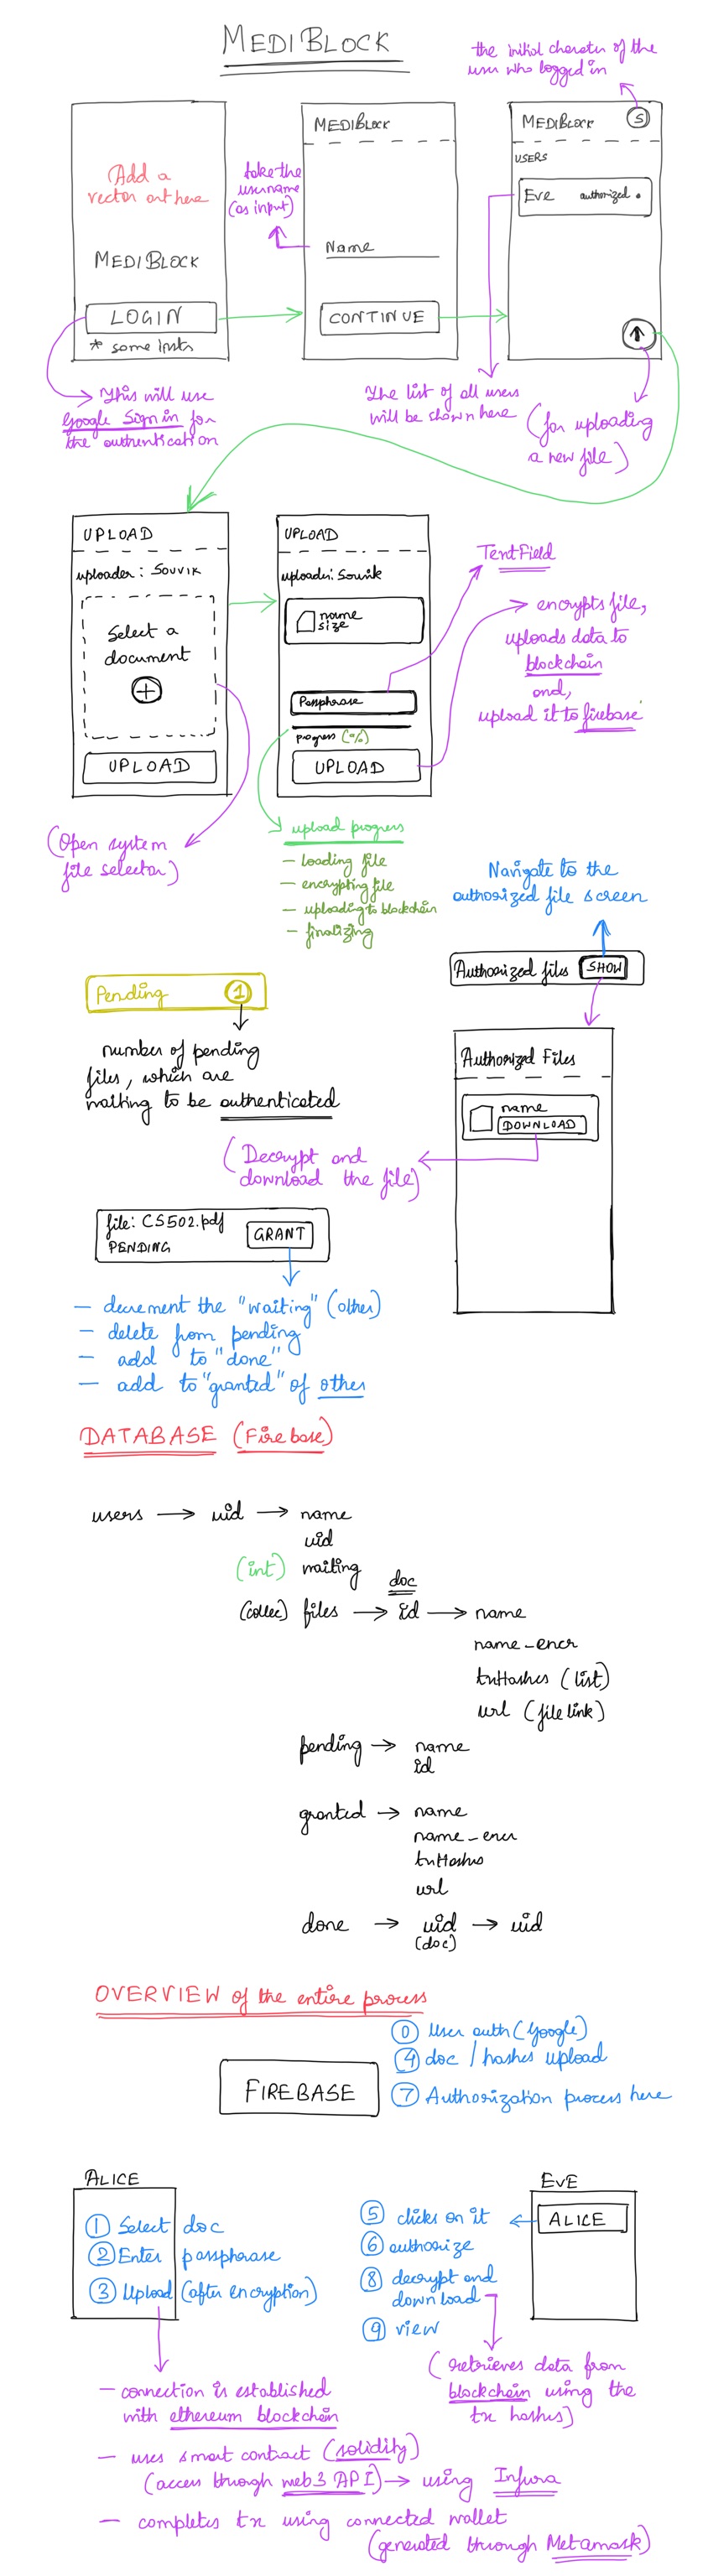 MEDIBLOCK
the initial charater of the
user who logged in
Add a
vector art here
MEDIBLOCK
LOGIN
* some insts
take the
username
(as input)
MEDIBLOCK
Name
CONTINUE
MEDIBLOCK
S
USERS
Eve authorized
This will use
Google Sign in for
the authentication
The list of all users
will be shown here
(for uploading
a new file)
UPLOAD
uploader: SOUVIK
Select a
document
+
UPLOAD
UPLOAD
uploader: Souvik
name
size
Passphrase
progress (%)
UPLOAD
TextField
encrypts file,
uploads data to
blockchain
and,
upload it to firebase
(Open system
file selector)
upload progress
- loading file
- encrypting file
- uploading to blockchain
- finalizing
Navigate to the
authorized file screen
Authorized files SHOW
Pending 1
number of pending
files, which are
waiting to be authenticated
Authorized Files
name
DOWNLOAD
(Decrypt and
download the file)
file: CS502.pdf
PENDING
GRANT
- decrement the "waiting" (other)
- delete from pending
- add to "done"
- add to "granted" of other
DATABASE (Firebase)
users → uid → name
uid
(int) waiting
doc
(collec) files → id → name
name_encr
txHashes (list)
url (file link)
pending → name
id
granted → name
name_encr
txHashes
url
done → uid → uid
(doc)
OVERVIEW of the entire process
FIREBASE
0 User auth (Google)
4 doc / hashes upload
7 Authorization process here
ALICE
1 Select doc
2 Enter passphrase
3 Upload (after encryption)
EVE
ALICE
5 clicks on it
6 authorize
8 decrypt and
download
9 view
(retrieves data from
blockchain using the
tx hashes)
- connection is established
with ethereum blockchain
- uses smart contract (solidity)
(access through web3 API) → using Infura
- completes tx using connected wallet
(generated through Metamask)